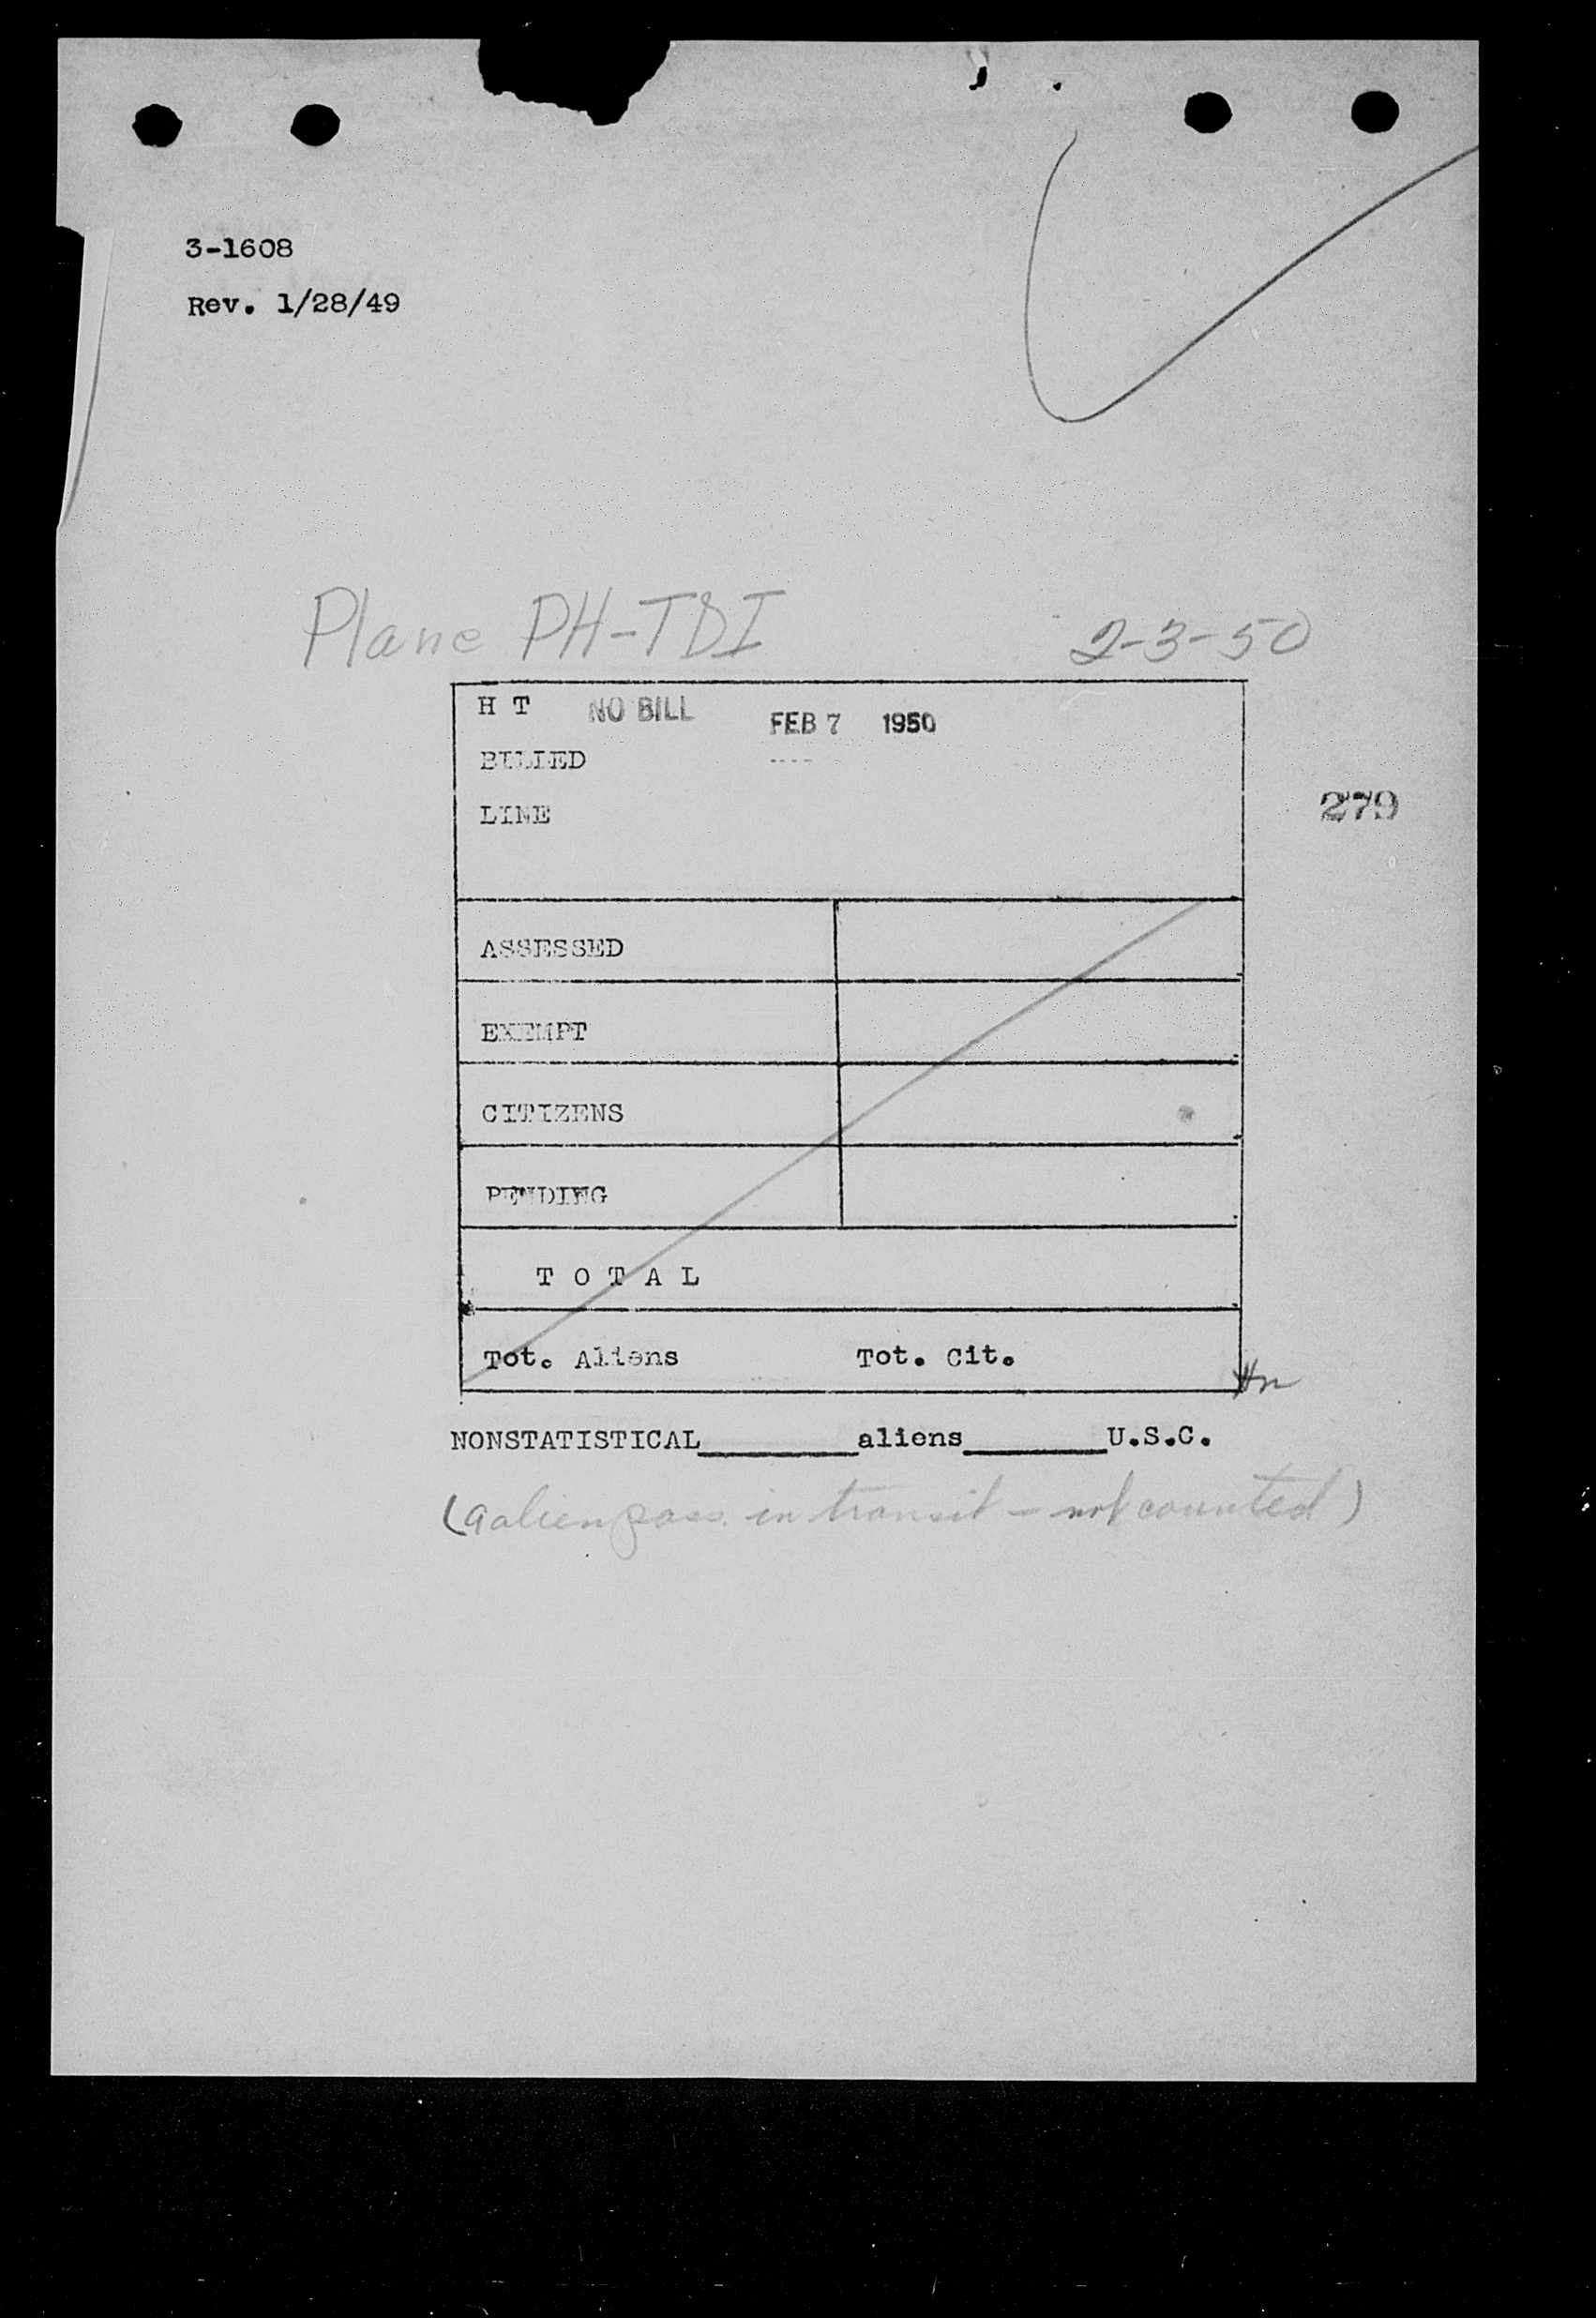 3-1608
Rev. 1/28/49
Plane PH-TDI 2-3-50
H T NO BILL FEB 7 1950
BILLED
LINE
279
ASSESSED
EXEMPT
CITIZENS
PENDING
T O T A L
Tot. Aliens Tot. Cit.
NONSTATISTICAL________aliens________U.S.C.
(9 alien pass. in transit - not counted)